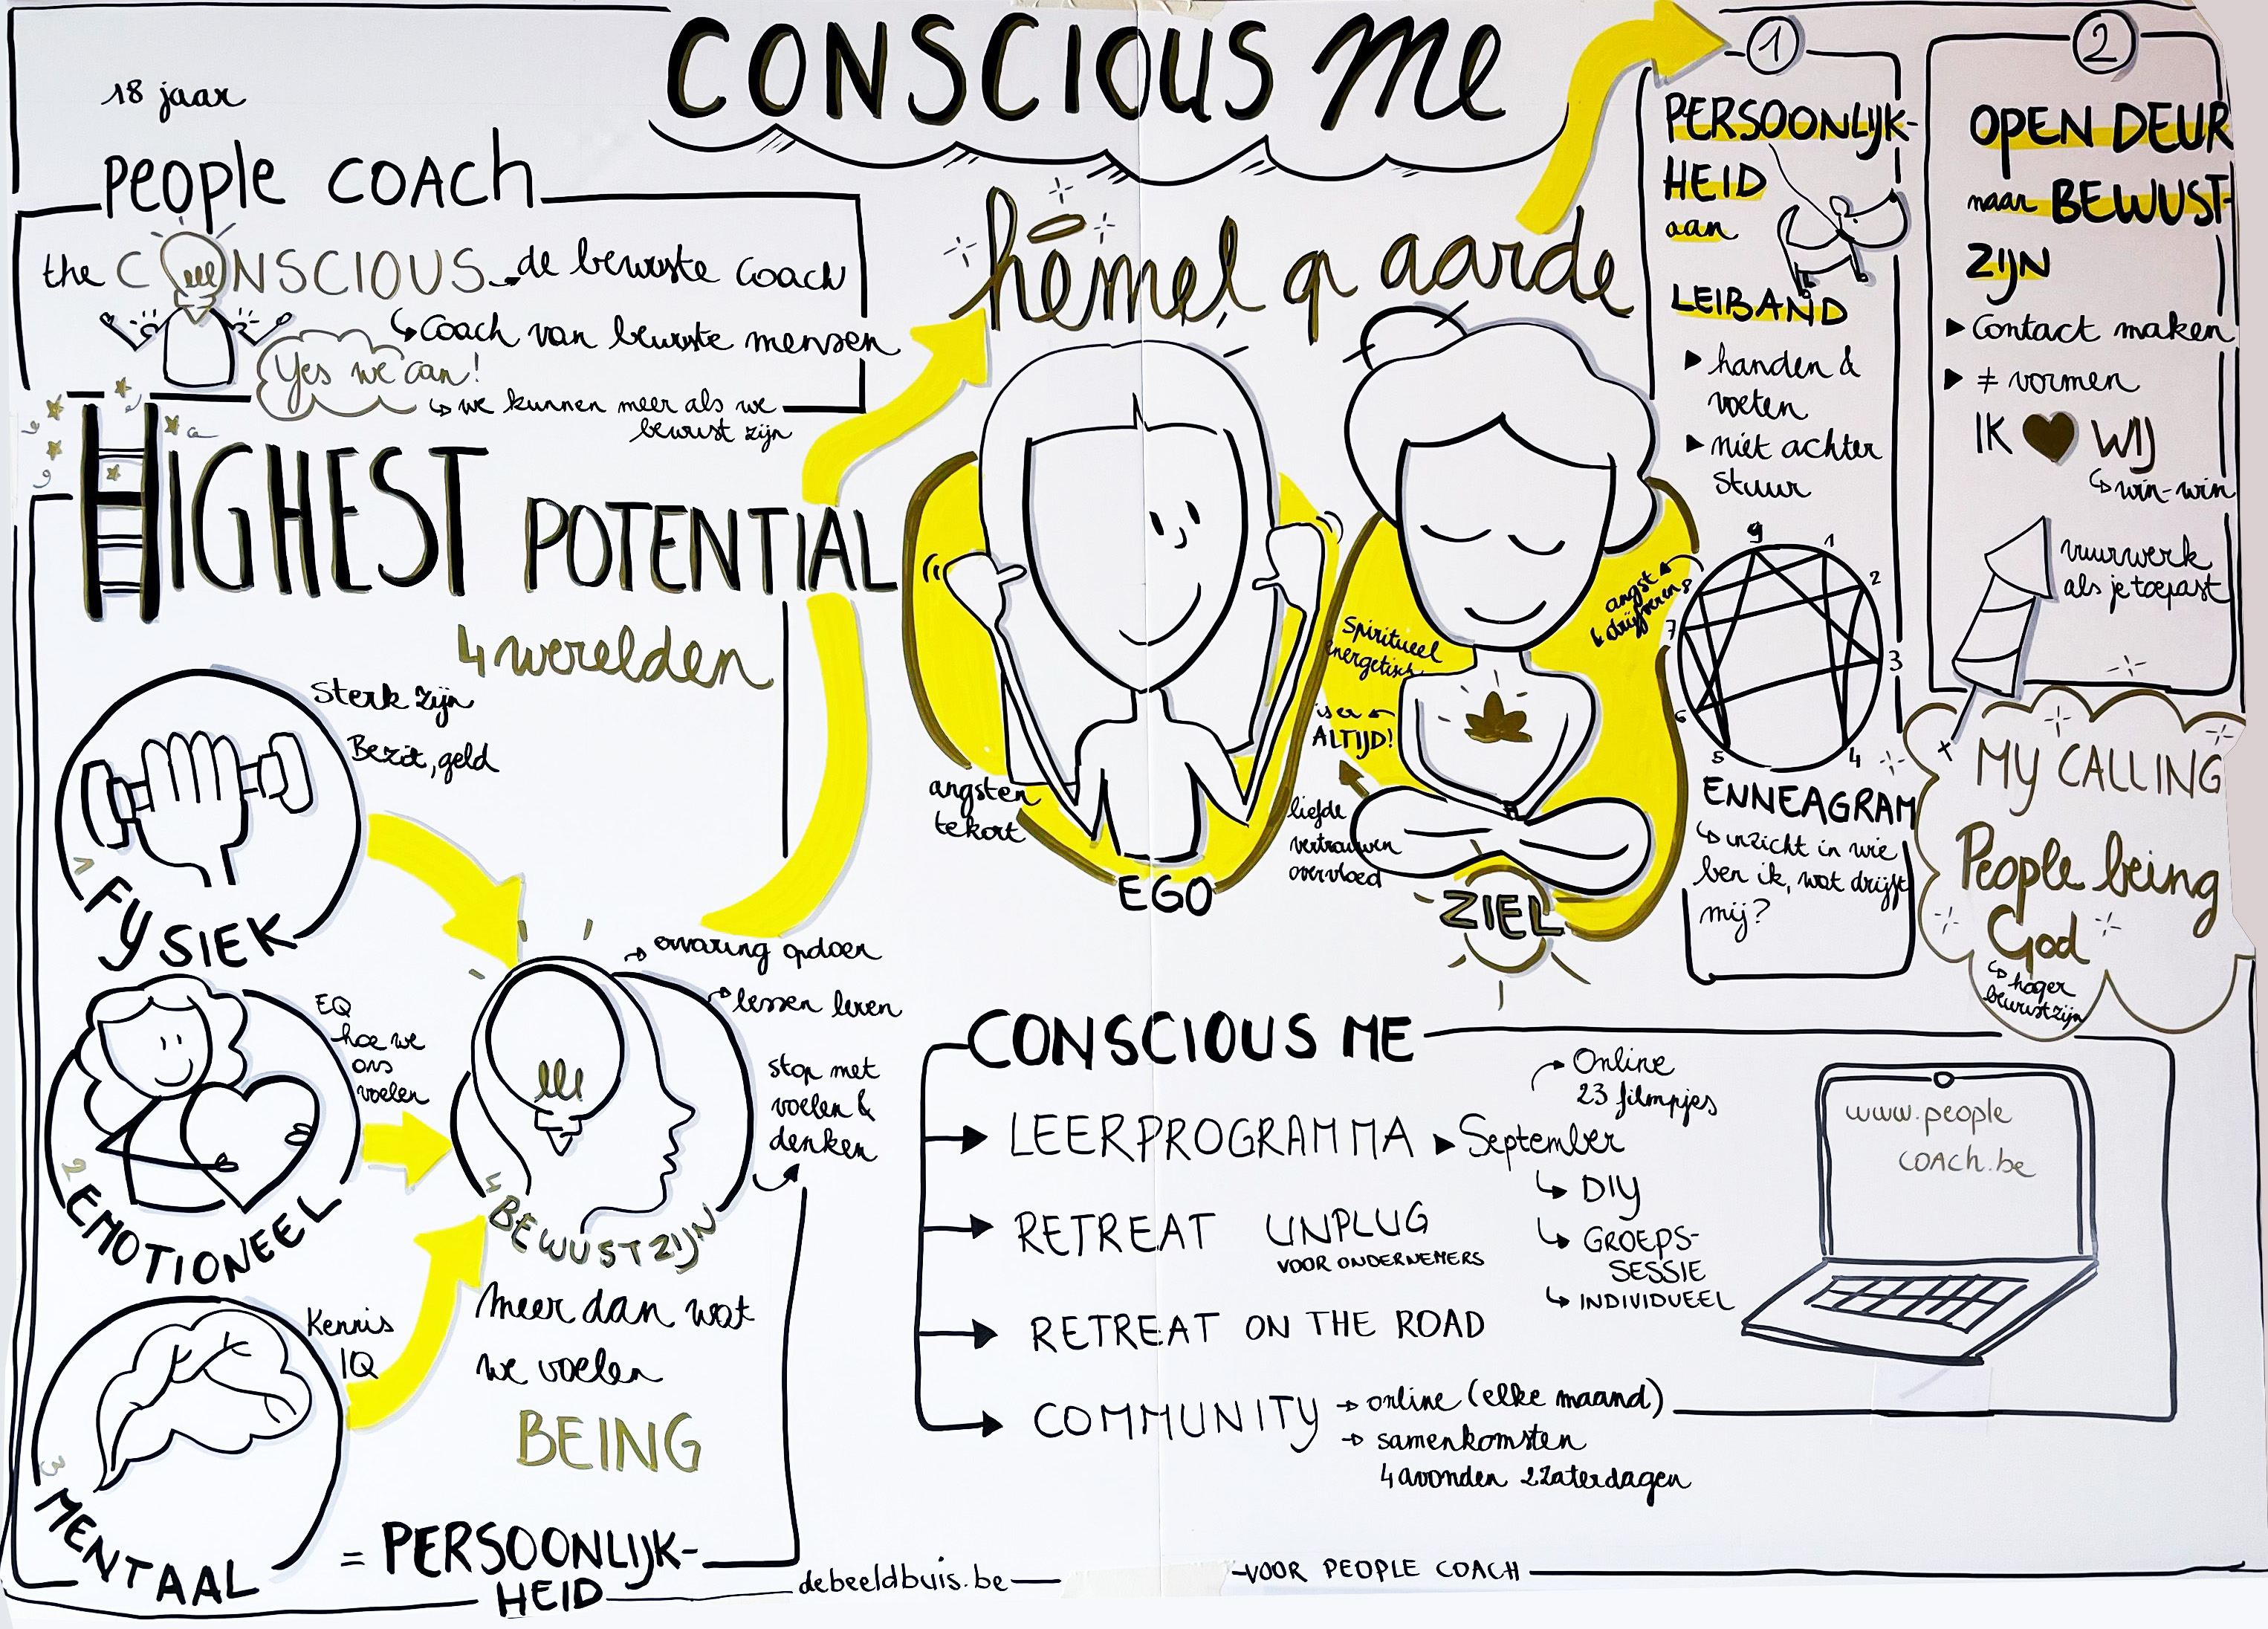 CONSCIOUS me
18 jaar
people COACH
the CONSCIOUS
de bewuste coach
Coach van bewuste mensen
Yes we can!
we kunnen meer als we
bewust zijn
HIGHEST POTENTIAL
4 werelden
Sterk zijn
Bezit, geld
1 FYSIEK
EQ
hoe we
ons
voelen
2 EMOTIONEEL
Kennis
IQ
3 MENTAAL
ervaring opdoen
lessen leren
stop met
voelen &
denken
4 BEWUSTZIJN
meer dan wat
we voelen
BEING
= PERSOONLIJK-
HEID
hemel op aarde
angsten
tekort
EGO
Spiritueel
energetisch
is er
ALTIJD!
liefde
vertrouwen
overvloed
ZIEL
1
PERSOONLIJK-
HEID
aan
LEIBAND
handen &
voeten
niet achter
stuur
angst
& drijfveren
9
1
2
3
4
5
6
7
8
ENNEAGRAM
inzicht in wie
ben ik, wat drijft
mij?
2
OPEN DEUR
naar BEWUST-
ZIJN
Contact maken
≠ vormen
IK ♥ WIJ
win-win
vuurwerk
als je toepast
MY CALLING
People being
God
hoger
bewustzijn
CONSCIOUS ME
LEERPROGRAMMA
September
Online
23 filmpjes
DIY
GROEPS-
SESSIE
INDIVIDUEEL
RETREAT UNPLUG
VOOR ONDERNEMERS
RETREAT ON THE ROAD
COMMUNITY
online (elke maand)
samenkomsten
4 avonden 2 zaterdagen
www.people
COACH.be
debeeldbuis.be
VOOR PEOPLE COACH